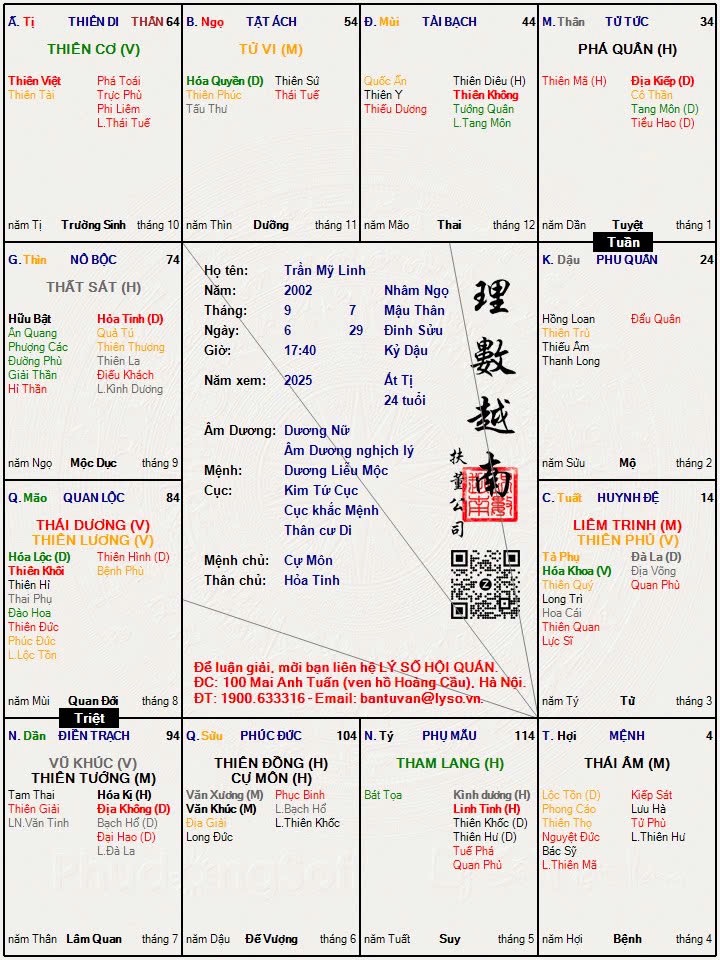 Ấ. Tị THIÊN DI THÂN 64
THIÊN CƠ (V)
Thiên Việt Phá Toái
Thiên Tài Trực Phù
Phi Liêm
L.Thái Tuế
năm Tị Trường Sinh tháng 10
B. Ngọ TẬT ÁCH 54
TỬ VI (M)
Hóa Quyền (D) Thiên Sứ
Thiên Phúc Thái Tuế
Tấu Thư
năm Thìn Dưỡng tháng 11
Đ. Mùi TÀI BẠCH 44
Quốc Ấn Thiên Diêu (H)
Thiên Y Thiên Không
Thiếu Dương Tướng Quân
L.Tang Môn
năm Mão Thai tháng 12
M. Thân TỬ TỨC 34
PHÁ QUÂN (H)
Thiên Mã (H) Địa Kiếp (D)
Cô Thần
Tang Môn (D)
Tiểu Hao (D)
năm Dần Tuyệt tháng 1
Tuần
G. Thìn NÔ BỘC 74
THẤT SÁT (H)
Hữu Bật Hỏa Tinh (D)
Ân Quang Quả Tú
Phượng Các Thiên Thương
Đường Phù Thiên La
Giải Thần Điếu Khách
Hỉ Thần L.Kình Dương
năm Ngọ Mộc Dục tháng 9
Họ tên: Trần Mỹ Linh
Năm: 2002 Nhâm Ngọ
Tháng: 9 7 Mậu Thân
Ngày: 6 29 Đinh Sửu
Giờ: 17:40 Kỷ Dậu
Năm xem: 2025 Ất Tị
24 tuổi
Âm Dương: Dương Nữ
Âm Dương nghịch lý
Mệnh: Dương Liễu Mộc
Cục: Kim Tứ Cục
Cục khắc Mệnh
Thân cư Di
Mệnh chủ: Cự Môn
Thân chủ: Hỏa Tinh
理數越南
扶董公司
Để luận giải, mời bạn liên hệ LÝ SỐ HỘI QUÁN.
ĐC: 100 Mai Anh Tuấn (ven hồ Hoàng Cầu), Hà Nội.
ĐT: 1900.633316 - Email: bantuvan@lyso.vn.
K. Dậu PHU QUÂN 24
Hồng Loan Đẩu Quân
Thiên Trù
Thiếu Âm
Thanh Long
năm Sửu Mộ tháng 2
Q. Mão QUAN LỘC 84
THÁI DƯƠNG (V)
THIÊN LƯƠNG (V)
Hóa Lộc (D) Thiên Hình (D)
Thiên Khôi Bệnh Phù
Thiên Hỉ
Thai Phụ
Đào Hoa
Thiên Đức
Phúc Đức
L.Lộc Tồn
năm Mùi Quan Đới tháng 8
Triệt
C. Tuất HUYNH ĐỆ 14
LIÊM TRINH (M)
THIÊN PHỦ (V)
Tả Phụ Đà La (D)
Hóa Khoa (V) Địa Võng
Thiên Quý Quan Phù
Long Trì
Hoa Cái
Thiên Quan
Lực Sĩ
năm Tý Tử tháng 3
N. Dần ĐIỀN TRẠCH 94
VŨ KHÚC (V)
THIÊN TƯỚNG (M)
Tam Thai Hóa Kị (H)
Thiên Giải Địa Không (D)
LN.Văn Tinh Bạch Hổ (D)
Đại Hao (D)
L.Đà La
năm Thân Lâm Quan tháng 7
Q. Sửu PHÚC ĐỨC 104
THIÊN ĐỒNG (H)
CỰ MÔN (H)
Văn Xương (M) Phục Binh
Văn Khúc (M) L.Bạch Hổ
Địa Giải L.Thiên Khốc
Long Đức
năm Dậu Đế Vượng tháng 6
N. Tý PHỤ MẪU 114
THAM LANG (H)
Bát Tọa Kình dương (H)
Linh Tinh (H)
Thiên Khốc (D)
Thiên Hư (D)
Tuế Phá
Quan Phủ
năm Tuất Suy tháng 5
T. Hợi MỆNH 4
THÁI ÂM (M)
Lộc Tồn (D) Kiếp Sát
Phong Cáo Lưu Hà
Thiên Thọ Tử Phù
Nguyệt Đức L.Thiên Hư
Bác Sỹ
L.Thiên Mã
năm Hợi Bệnh tháng 4